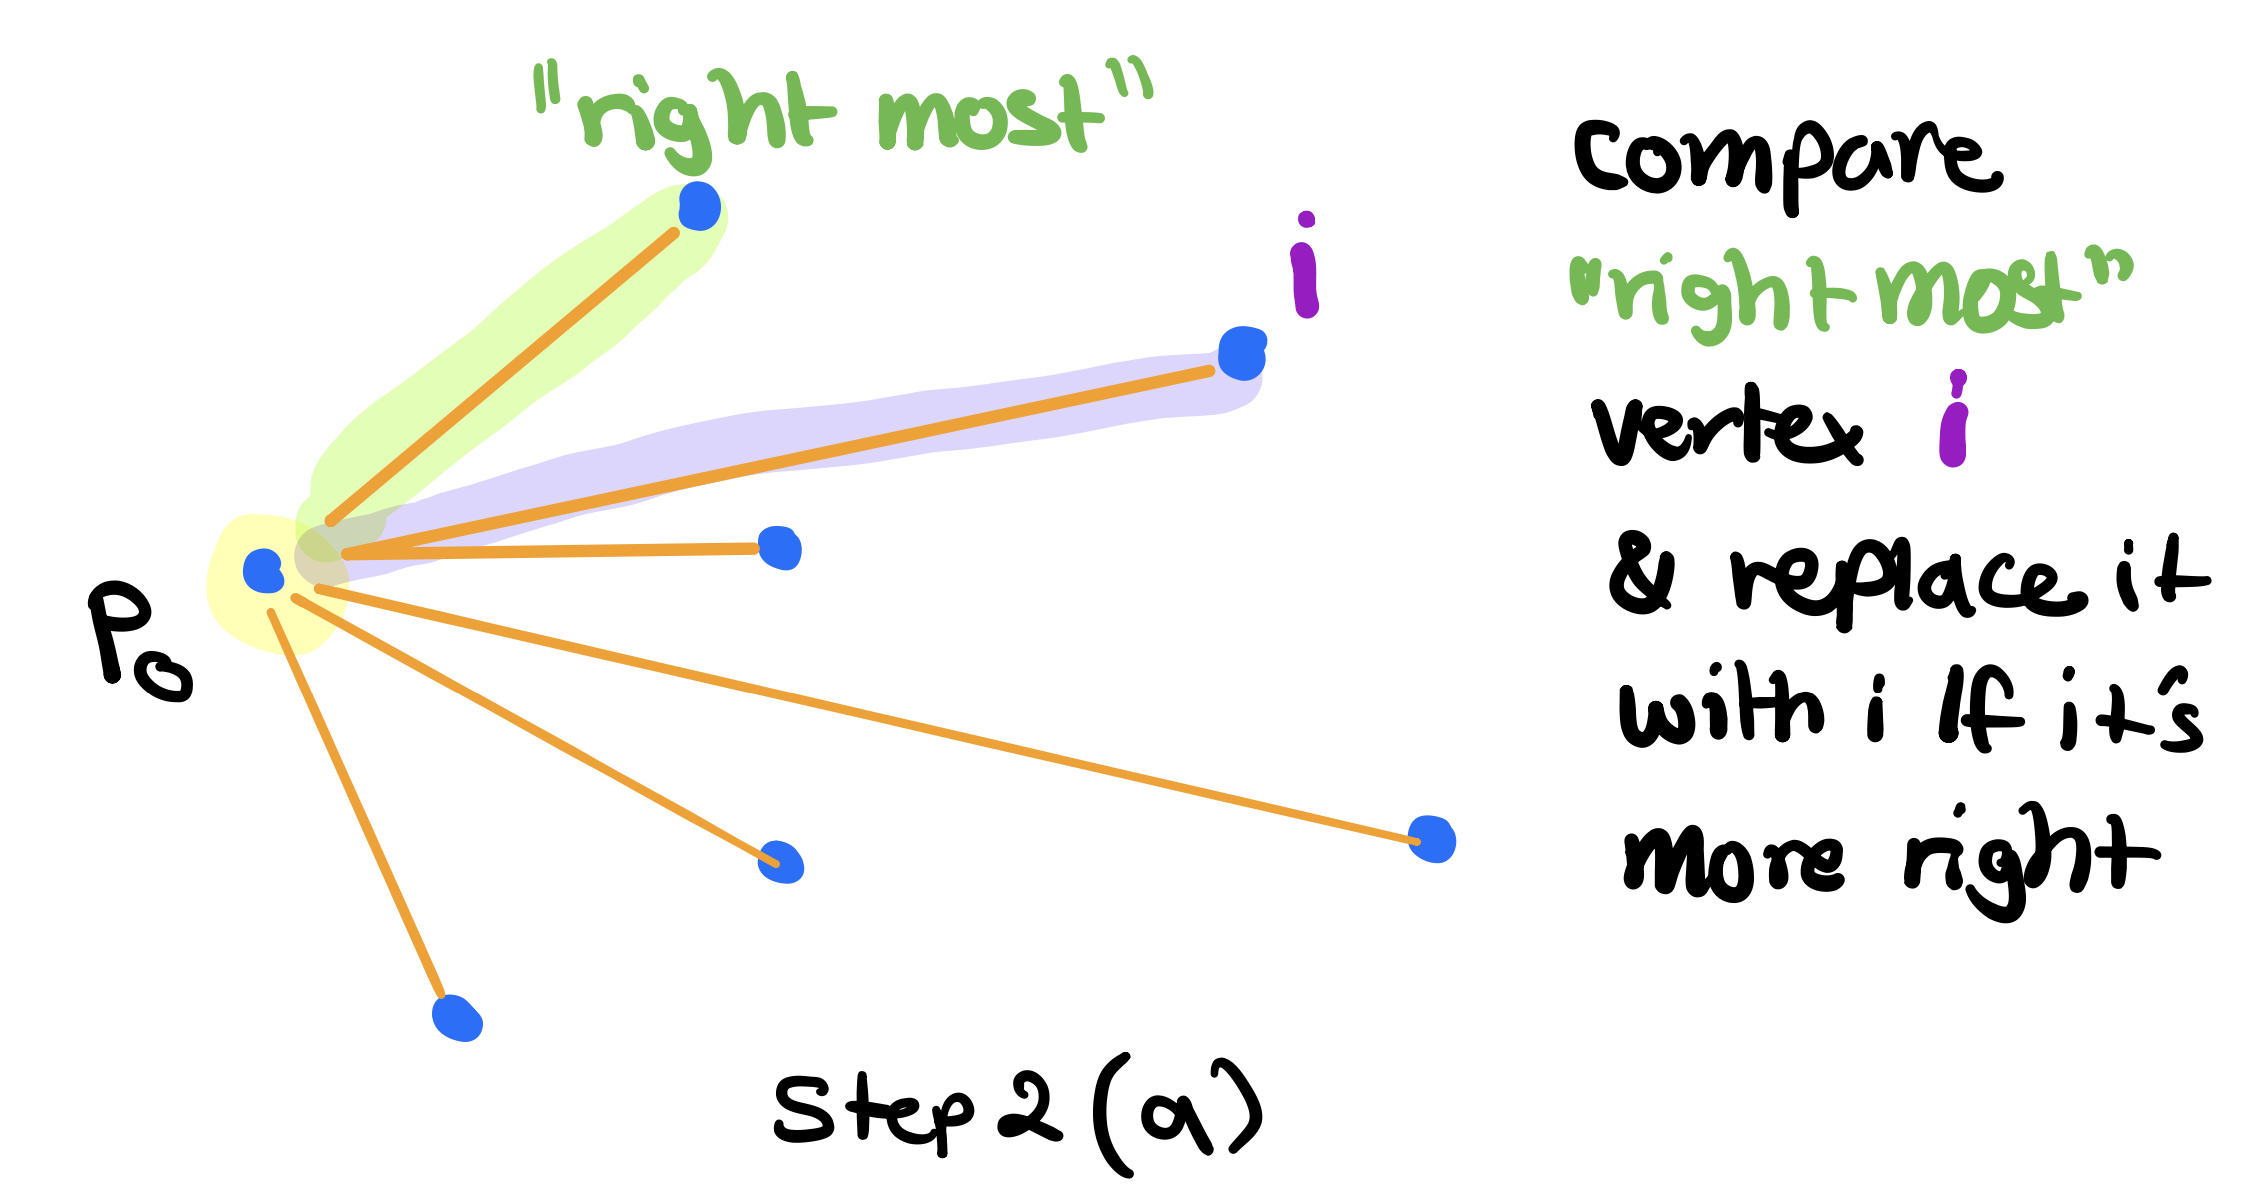 "right most"
i
P0
Compare
"right most"
vertex i
& replace it
with i If it's
more right
Step 2 (a)